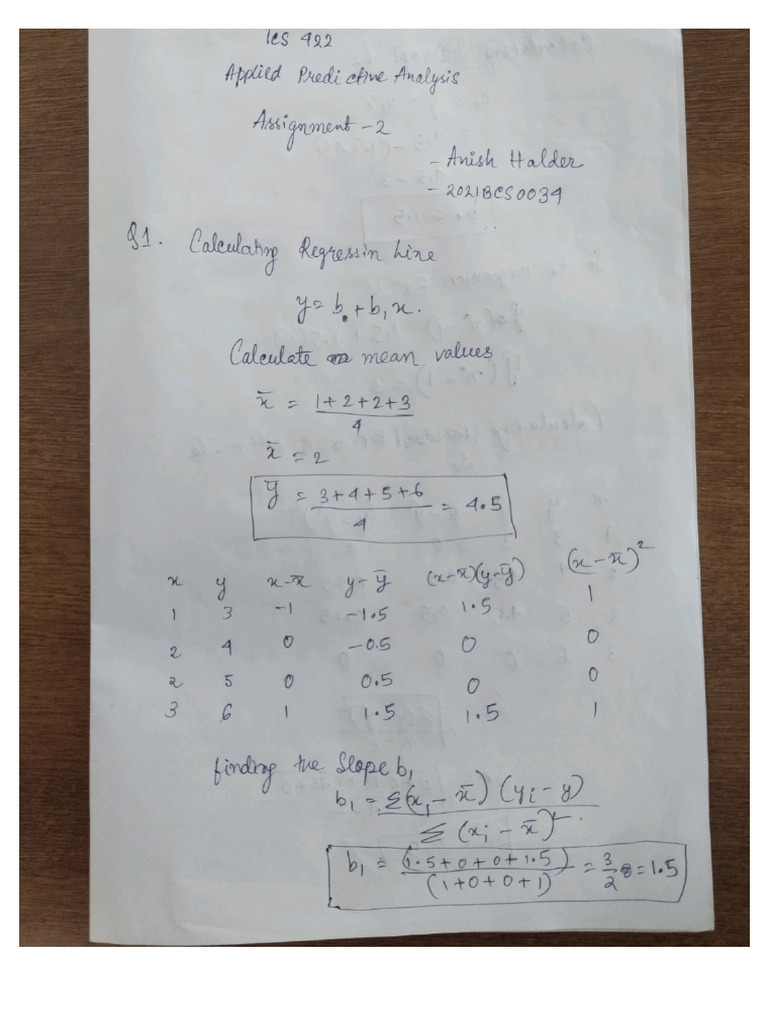 ICS 422
Applied Predictive Analysis
Assignment - 2
- Anish Halder
- 2021BCS0034
Q1. Calculating Regressin Line
y = b₀ + b₁ x.
Calculate mean values
x̄ = (1+2+2+3)/4
x̄ = 2
ȳ = (3+4+5+6)/4 = 4.5
x y x-x̄ y-ȳ (x-x̄)(y-ȳ) (x-x̄)²
1 3 -1 -1.5 1.5 1
2 4 0 -0.5 0 0
2 5 0 0.5 0 0
3 6 1 1.5 1.5 1
finding the Slope b₁
b₁ = Σ(xᵢ - x̄) (yᵢ - y) / Σ (xᵢ - x̄)².
b₁ = (1.5+0+0+1.5) / (1+0+0+1) = 3/2 = 1.5